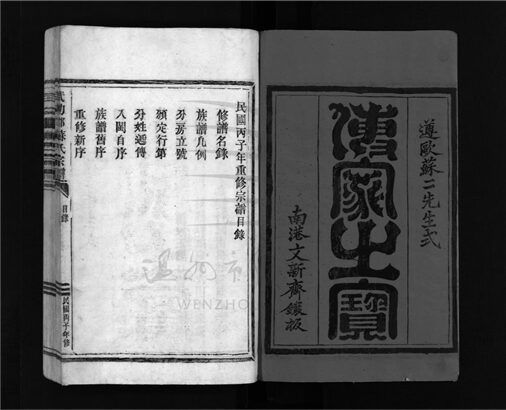 遵歐蘇二先生式
傳家之寶
南港文新齋鐫板
民國丙子年重修宗譜目錄
修譜名錄
族譜凡例
分房立號
預定行第
分姓遞傳
入閩自序
族譜舊序
重修新序
目錄
民國丙子年修
温州市
WENZHO